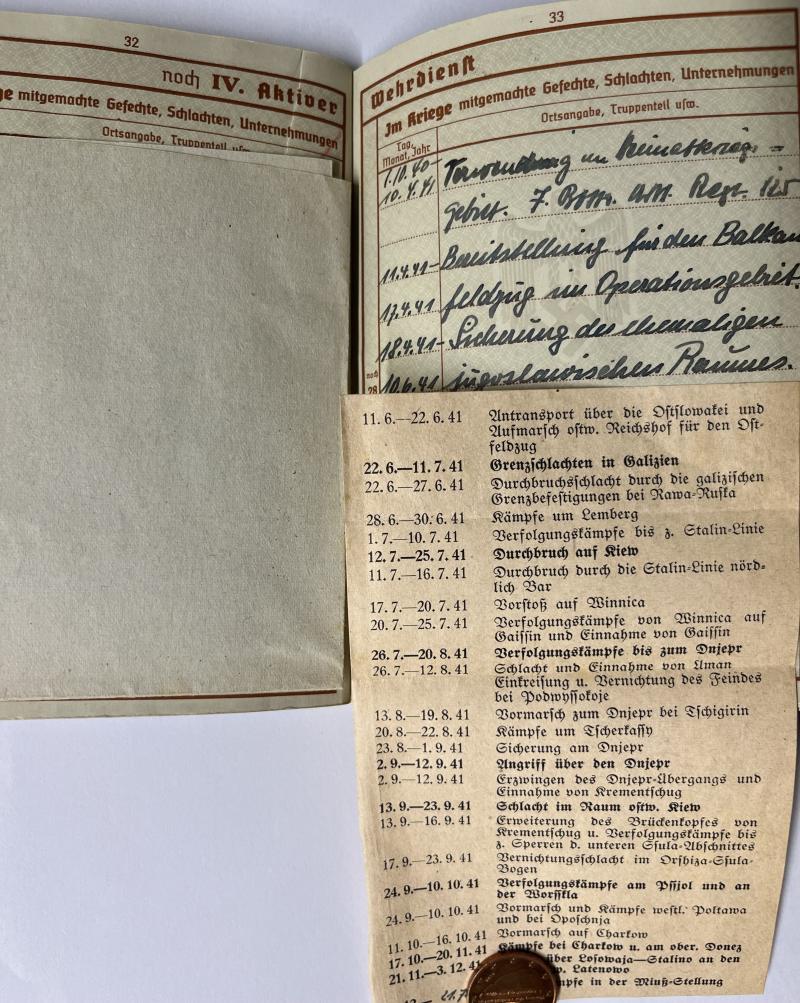 32
noch IV. Aktiver
mitgemachte Gefechte, Schlachten, Unternehmungen
Ortsangabe, Truppenteil usw.
33
Wehrdienst
Im Kriege mitgemachte Gefechte, Schlachten, Unternehmungen
Ortsangabe, Truppenteil usw.
Tag, Monat, Jahr
1.10.40- Verwendung im Heimatkriegs-
10.4.41 gebiet. 7. Battr. Art. Regt. 125
11.4.41- Bereitstellung für den Balkan
17.4.41 feldzug im Operationsgebiet.
18.4.41- Sicherung des ehemaligen
10.6.41 jugoslawischen Raumes.
noch
28
11. 6.—22. 6. 41 Antransport über die Ostslowakei und
Aufmarsch ostw. Reichshof für den Ost-
feldzug
22. 6.—11. 7. 41 Grenzschlachten in Galizien
22. 6.—27. 6. 41 Durchbruchsschlacht durch die galizischen
Grenzbefestigungen bei Rawa-Ruska
28. 6.—30. 6. 41 Kämpfe um Lemberg
1. 7.—10. 7. 41 Verfolgungskämpfe bis z. Stalin-Linie
12. 7.—25. 7. 41 Durchbruch auf Kiew
11. 7.—16. 7. 41 Durchbruch durch die Stalin-Linie nörd-
lich Bar
17. 7.—20. 7. 41 Vorstoß auf Winnica
20. 7.—25. 7. 41 Verfolgungskämpfe von Winnica auf
Gaissin und Einnahme von Gaissin
26. 7.—20. 8. 41 Verfolgungskämpfe bis zum Dnjepr
26. 7.—12. 8. 41 Schlacht und Einnahme von Uman
Einkreisung u. Vernichtung des Feindes
bei Podwyssokoje
13. 8.—19. 8. 41 Vormarsch zum Dnjepr bei Tschigirin
20. 8.—22. 8. 41 Kämpfe um Tscherkassy
23. 8.—1. 9. 41 Sicherung am Dnjepr
2. 9.—12. 9. 41 Angriff über den Dnjepr
2. 9.—12. 9. 41 Erzwingen des Dnjepr-Übergangs und
Einnahme von Krementschug
13. 9.—23. 9. 41 Schlacht im Raum ostw. Kiew
13. 9.—16. 9. 41 Erweiterung des Brückenkopfes von
Krementschug u. Verfolgungskämpfe bis
z. Sperren d. unteren Ssula-Abschnittes
17. 9.—23. 9. 41 Vernichtungsschlacht im Orshiza-Ssula-
Bogen
24. 9.—10. 10. 41 Verfolgungskämpfe am Pssjol und an
der Worsskla
24. 9.—10. 10. 41 Vormarsch und Kämpfe westl. Poltawa
und bei Oposchnja
11. 10.—16. 10. 41 Vormarsch auf Charkow
17. 10.—20. 11. 41 Kämpfe bei Charkow u. am ober. Donez
21. 11.—3. 12. 41 über Losowaja—Stalino an den
w. Latenowo
mpfe in der Miuß-Stellung